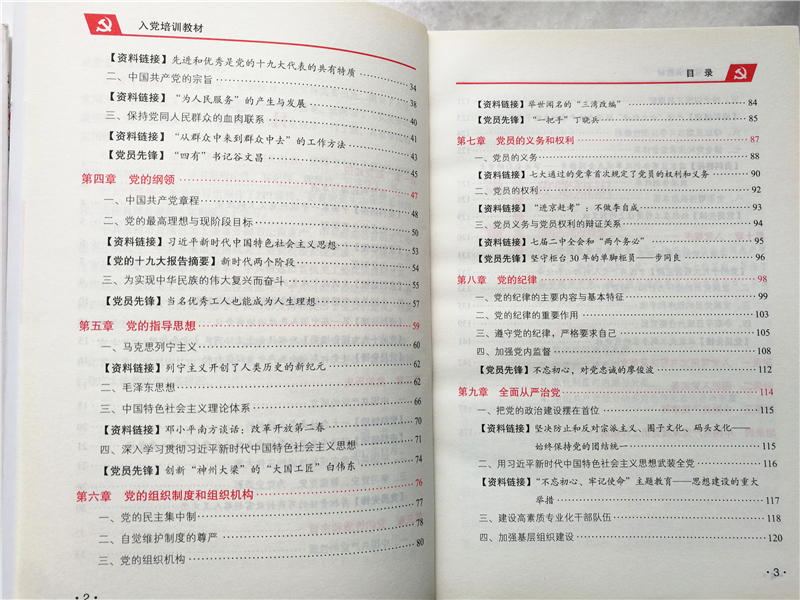 入党培训教材
【资料链接】先进和优秀是党的十九大代表的共有特质
二、中国共产党的宗旨 34
【资料链接】“为人民服务”的产生与发展 38
三、保持党同人民群众的血肉联系 40
【资料链接】“从群众中来到群众中去”的工作方法 41
【党员先锋】“四有”书记谷文昌 43
45
第四章 党的纲领 47
一、中国共产党章程 48
二、党的最高理想与现阶段目标 50
【资料链接】习近平新时代中国特色社会主义思想 53
【党的十九大报告摘要】新时代两个阶段 54
三、为实现中华民族的伟大复兴而奋斗 55
【党员先锋】当名优秀工人也能成为人生理想 57
第五章 党的指导思想 59
一、马克思列宁主义 60
【资料链接】列宁主义开创了人类历史的新纪元 62
二、毛泽东思想 62
三、中国特色社会主义理论体系 66
【资料链接】邓小平南方谈话：改革开放第二春 70
四、深入学习贯彻习近平新时代中国特色社会主义思想 71
【党员先锋】创新“神州大梁”的“大国工匠”白伟东 74
第六章 党的组织制度和组织机构 76
一、党的民主集中制 77
二、自觉维护制度的尊严 78
三、党的组织机构 80
· 2 ·
目 录
【资料链接】举世闻名的“三湾改编” 84
【党员先锋】“一把手”丁晓兵 85
第七章 党员的义务和权利 87
一、党员的义务 88
【资料链接】七大通过的党章首次规定了党员的权利和义务 90
二、党员的权利 92
【资料链接】“进京赶考”：不做李自成 93
三、党员义务与党员权利的辩证关系 94
【资料链接】七届二中全会和“两个务必” 95
【党员先锋】坚守柜台 30 年的单脚柜员——步同良 96
第八章 党的纪律 98
一、党的纪律的主要内容与基本特征 99
二、党的纪律的重要作用 103
三、遵守党的纪律，严格要求自己 105
四、加强党内监督 108
【党员先锋】不忘初心，对党忠诚的廖俊波 112
第九章 全面从严治党 114
一、把党的政治建设摆在首位 115
【资料链接】坚决防止和反对宗派主义、圈子文化、码头文化——
始终保持党的团结统一 115
二、用习近平新时代中国特色社会主义思想武装全党 116
【资料链接】“不忘初心、牢记使命”主题教育——思想建设的重大
举措 117
三、建设高素质专业化干部队伍 118
四、加强基层组织建设 120
· 3 ·